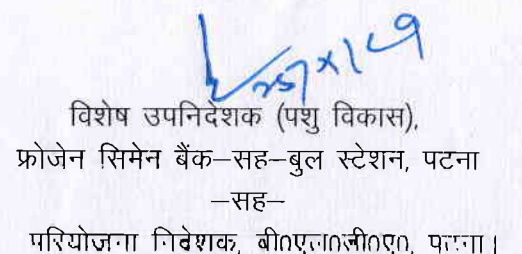 विशेष उपनिदेशक (पशु विकास),
फ्रोजेन सिमेन बैंक–सह–बुल स्टेशन, पटना
–सह–
परियोजना निदेशक, बी०एल०डी०ए०, पटना।